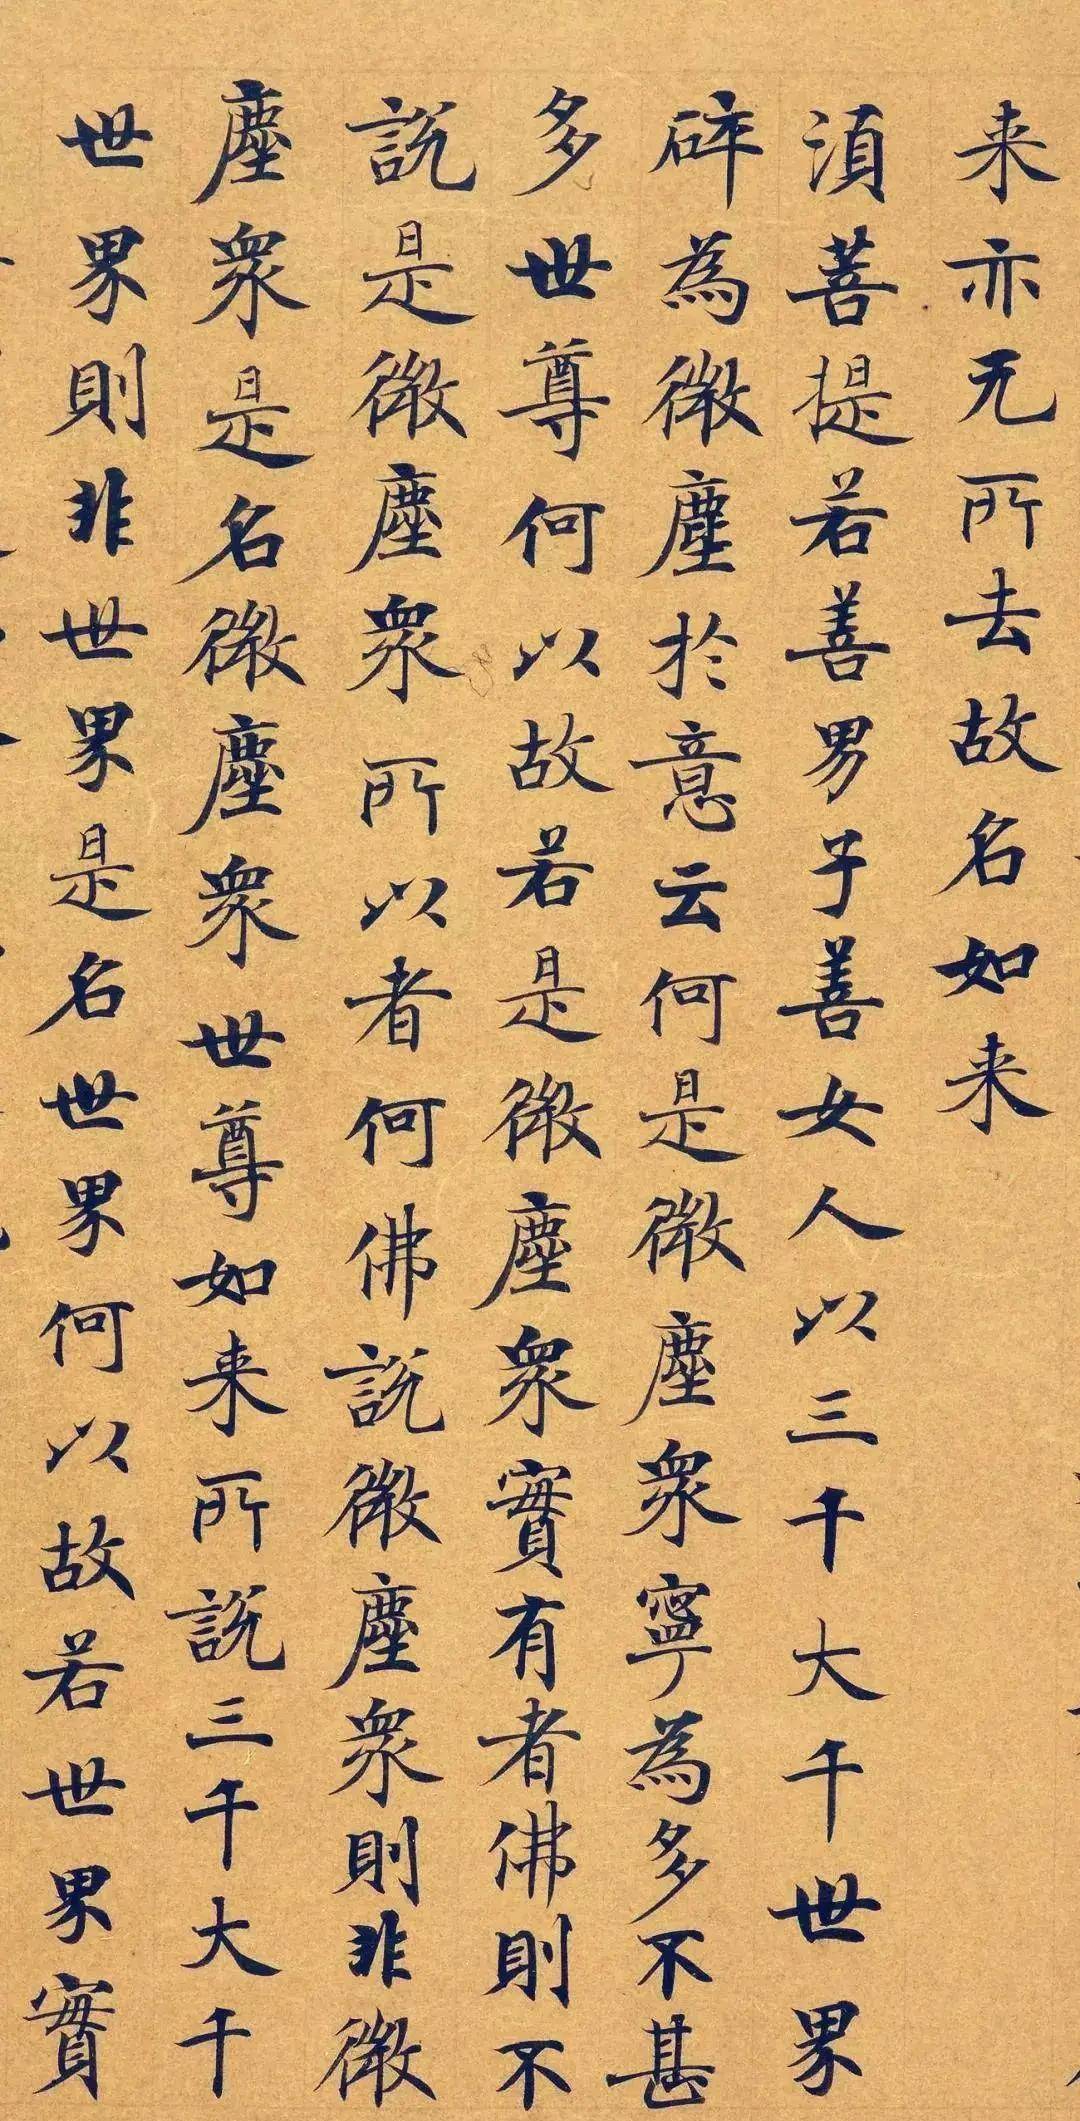 来亦无所去故名如来
湏菩提若善男子善女人以三千大千世界
碎為微塵於意云何是微塵衆寧為多不甚
多世尊何以故若是微塵衆實有者佛則不
說是微塵衆所以者何佛說微塵衆則非微
塵衆是名微塵衆世尊如来所說三千大千
世界則非世界是名世界何以故若世界實